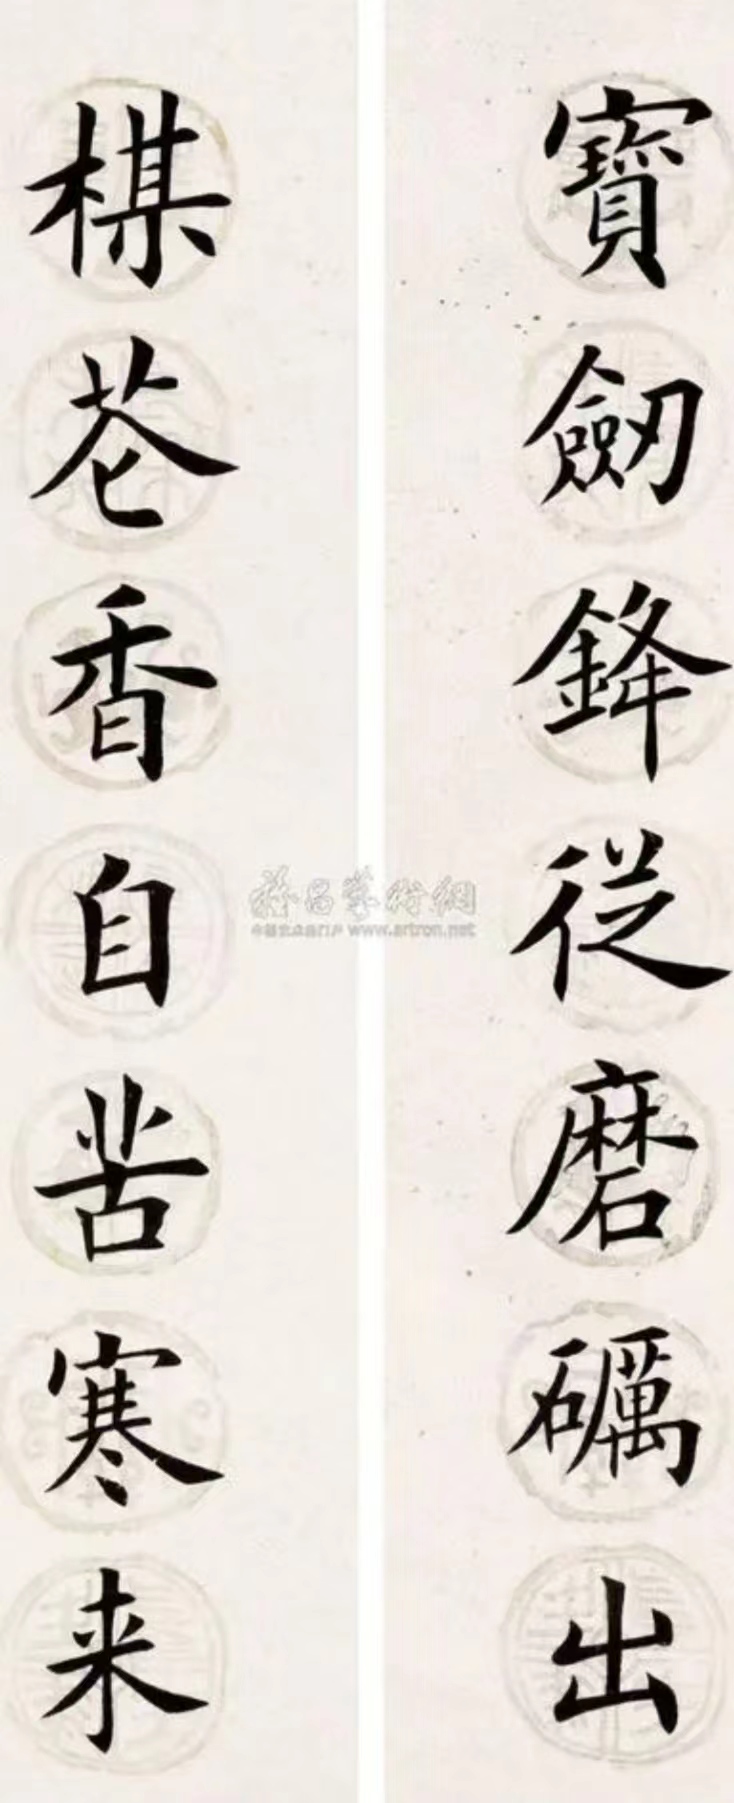 寶劔鋒従磨礪出
楳芲香自苦寒来
雅昌藝術網
中国艺术品门户 www.artron.net